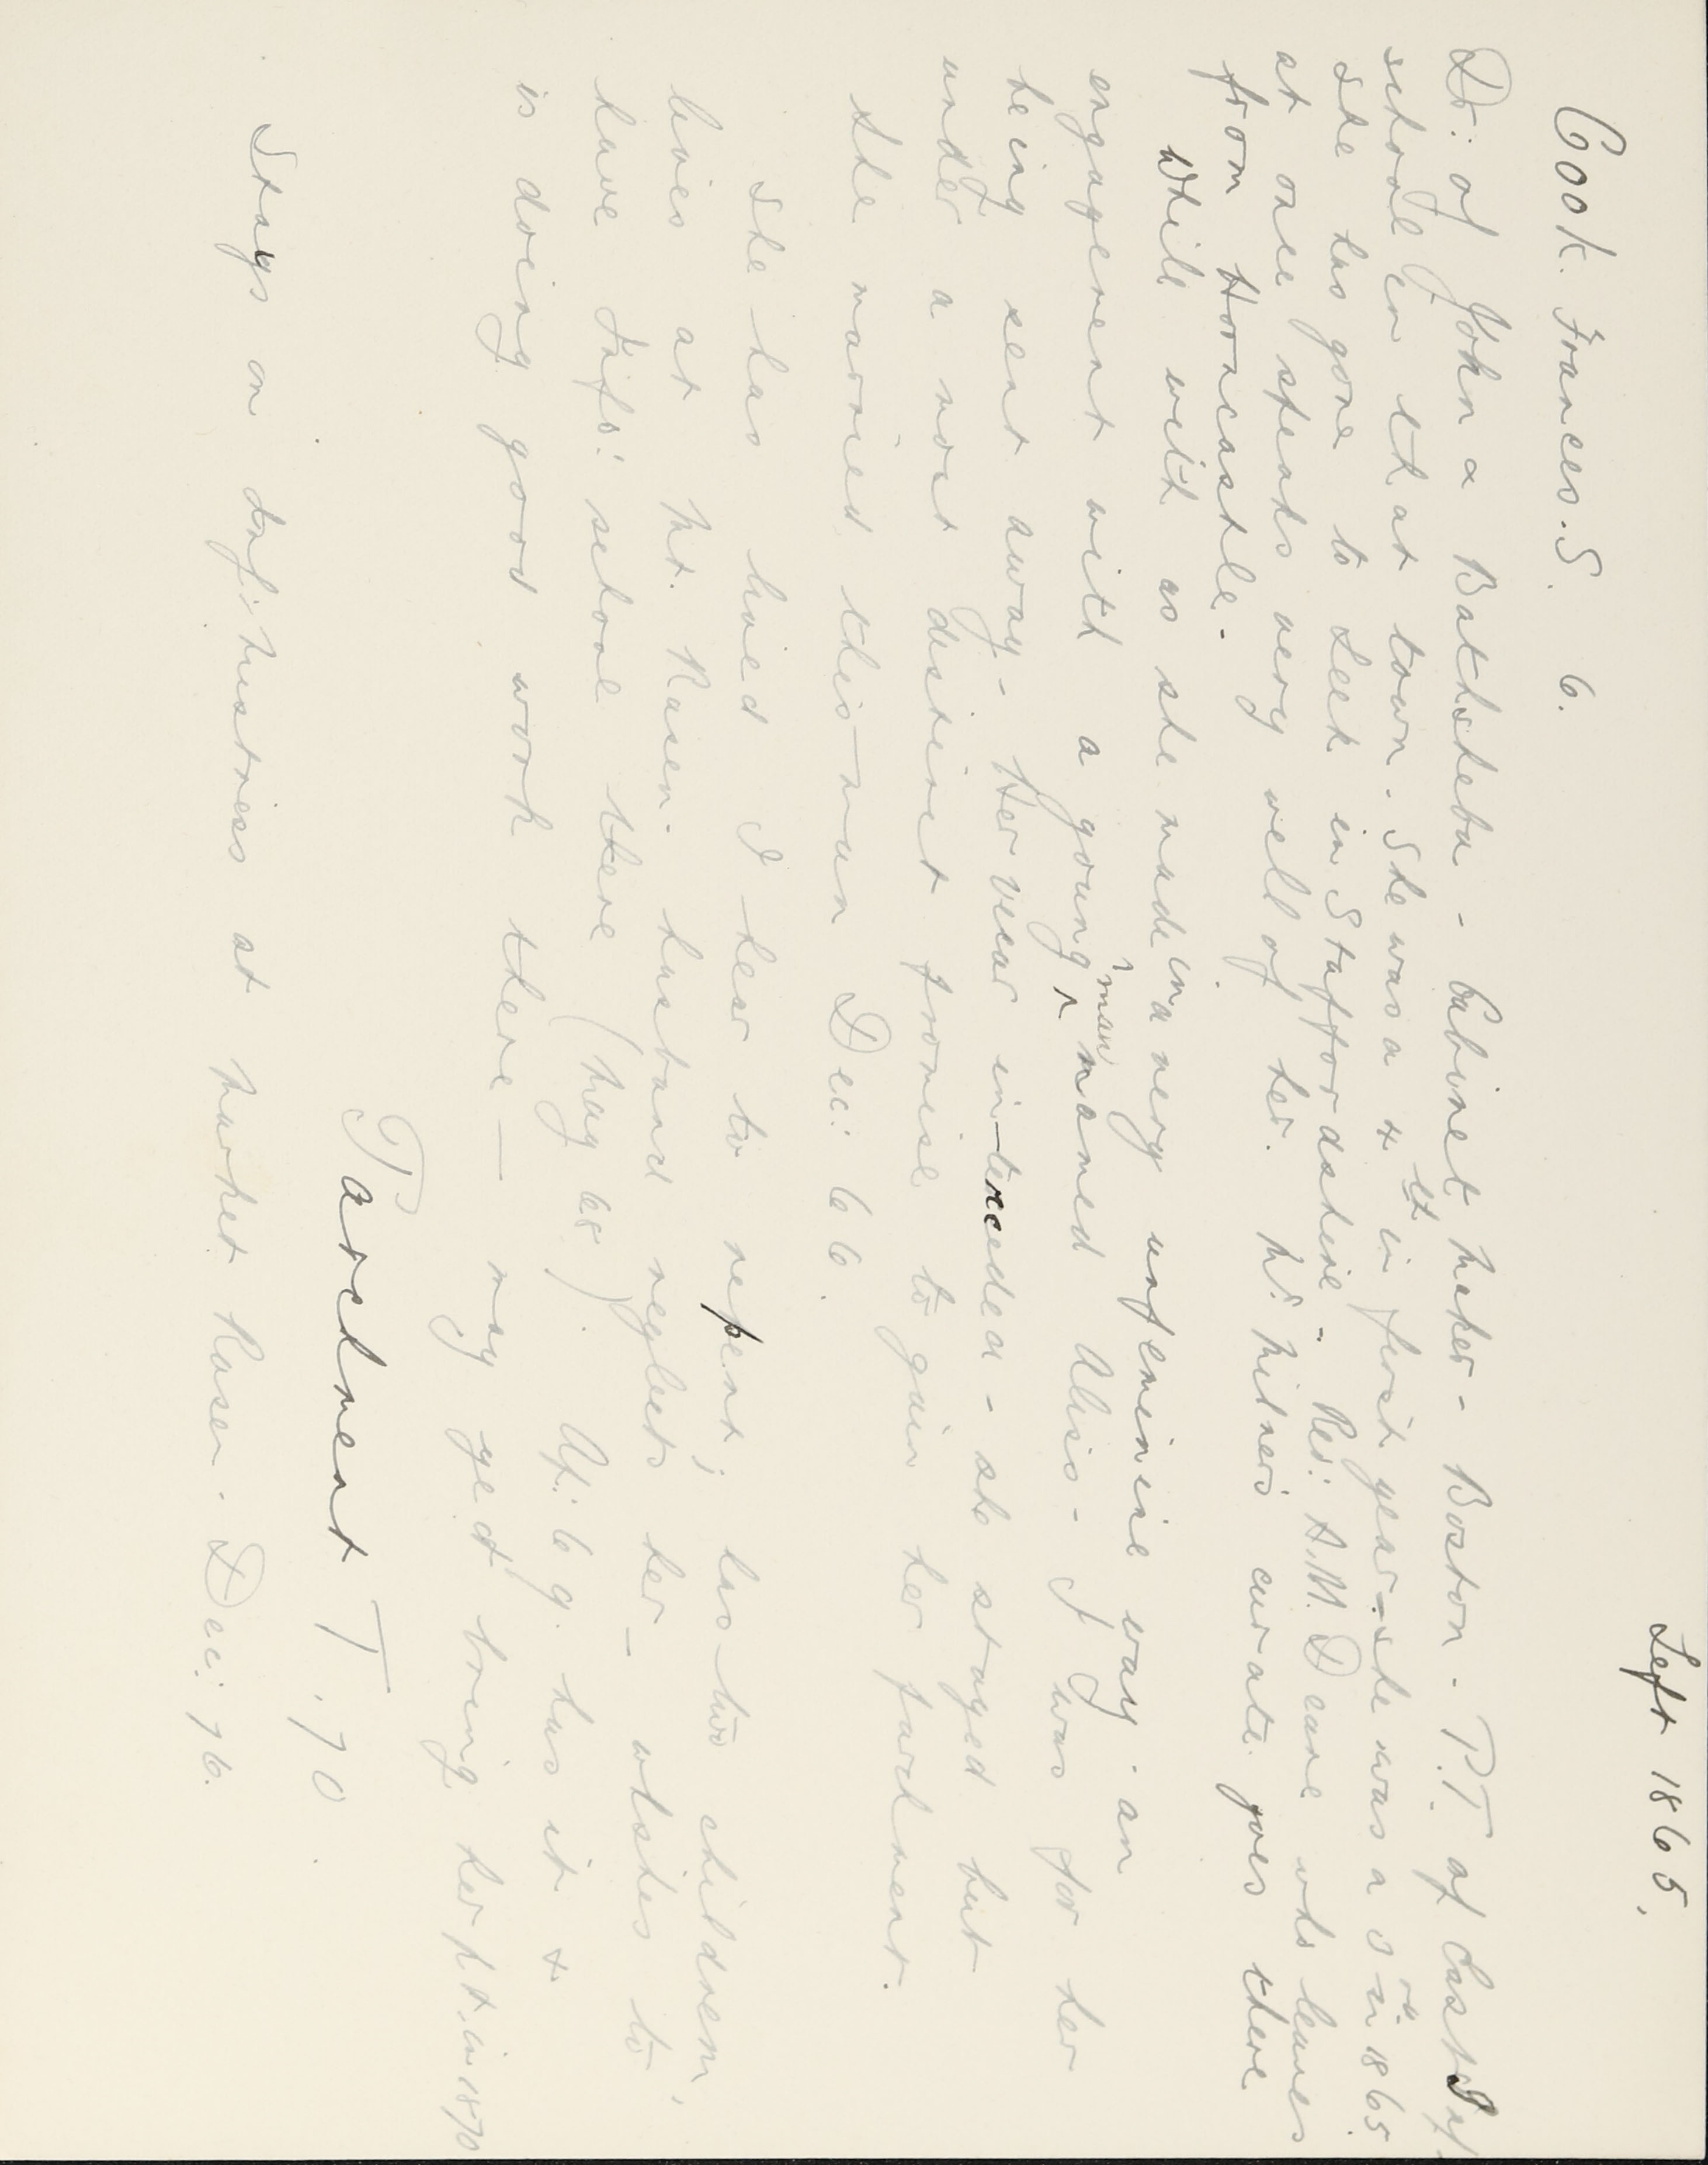 Left 1865.
Cook. Frances. S. 6.
Dr: of John & Bathsheba - Cabinet Maker - Boston - P.T. of East Inf.
school in that town. She was a + 1st in first year - she was a 3 in 1865.
She has gone to Leek in Staffordshire - Rev: A.M. Deane who leaves
at once speaks very well of her. Mr. Milner's curate goes there
from Horncastle -
While with us she made in a very unfeminine way - an
engagement with a young man named Alvis - I was for her
being sent away - Her vicar interceded - she stayed but
under a most distinct promise to gain her parchment.
She married this man Dec: 66.
She has lived I hear to repent; has two children;
lives at Mt. Rasen - husband neglects her - wishes to
have Inft: school there (May 68). Ap: 69. has it &
is doing good work there - may yet bring her pt. in 1870
Parchment T. 70
Stays on Inf: Mistress at Market Rasen. Dec: 76.